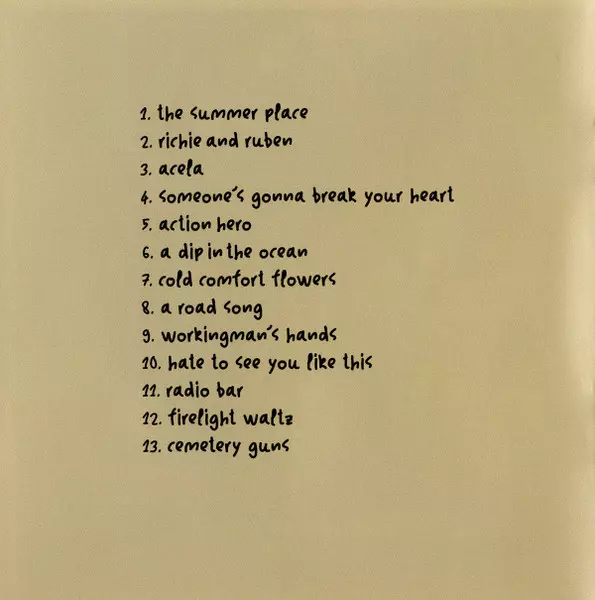 1. the summer place
2. richie and ruben
3. acela
4. someone's gonna break your heart
5. action hero
6. a dip in the ocean
7. cold comfort flowers
8. a road song
9. workingman's hands
10. hate to see you like this
11. radio bar
12. firelight waltz
13. cemetery guns